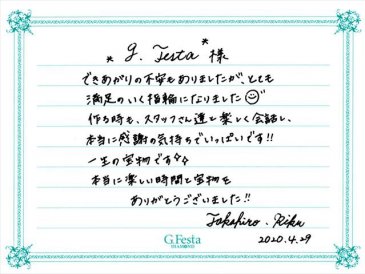 g. Festa 様
できあがりの不安もありましたが、とても
満足のいく指輪になりました
作る時も、スタッフさん達と楽しく会話し、
本当に感謝の気持ちでいっぱいです!!
一生の宝物です
本当に楽しい時間と宝物を
ありがとうございました!!
Takahiro . Rika
G.Festa
DIAMOND
2020.4.29